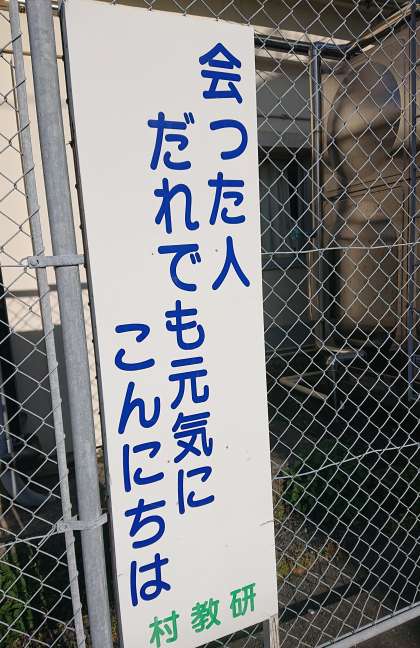 会つた人
だれでも元気に
こんにちは
村教研